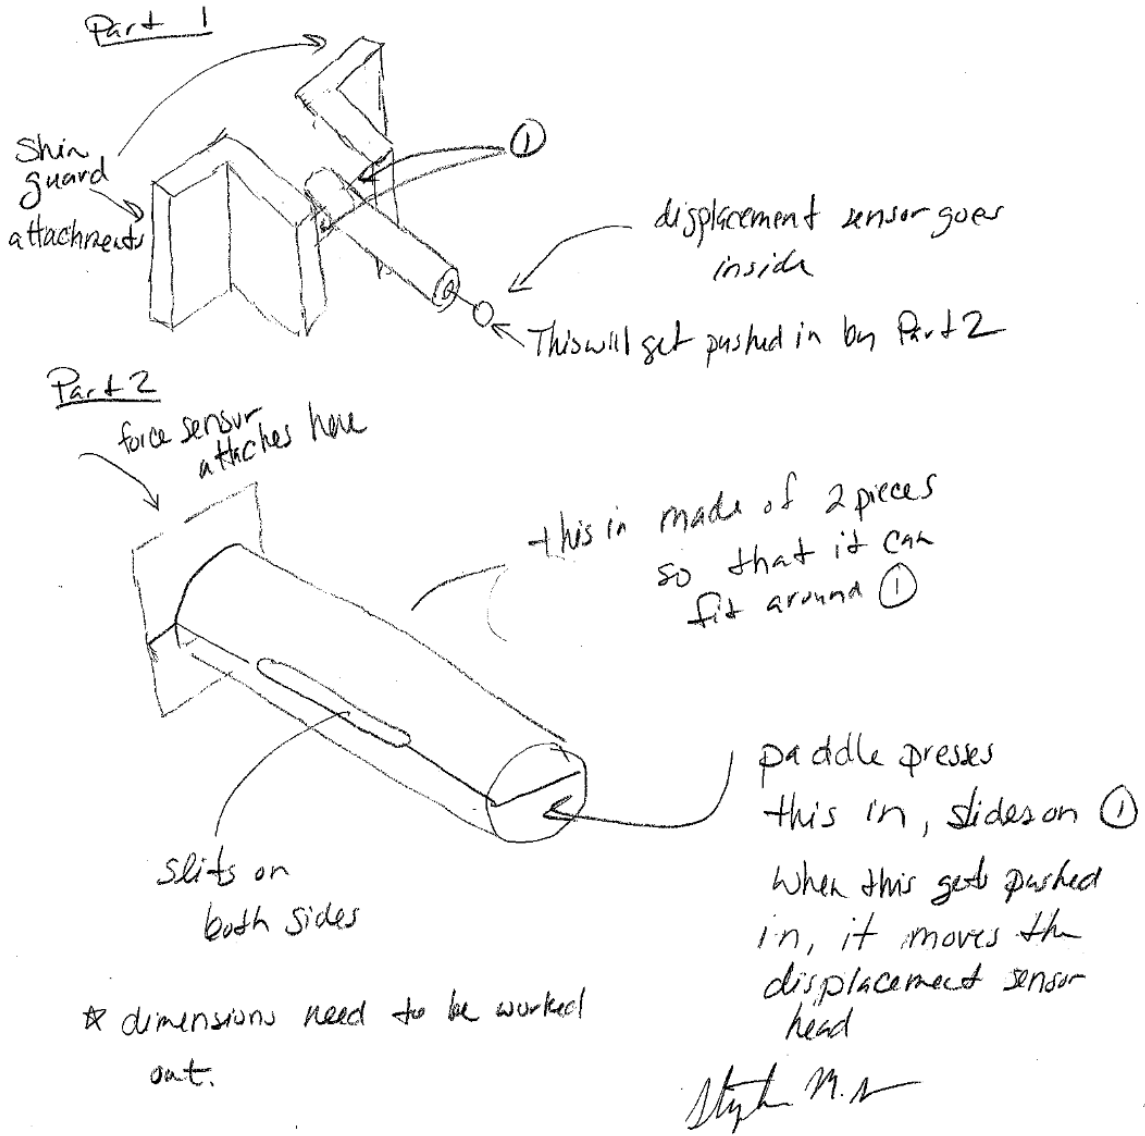 Part 1
①
Shin
guard
attachments
displacement sensor goes
inside
This will get pushed in by Part 2
Part 2
force sensor
attaches here
this in made of 2 pieces
so that it can
fit around ①
slits on
both sides
paddle presses
this in, slides on ①
When this gets pushed
in, it moves the
displacement sensor
head
☆ dimensions need to be worked
out.